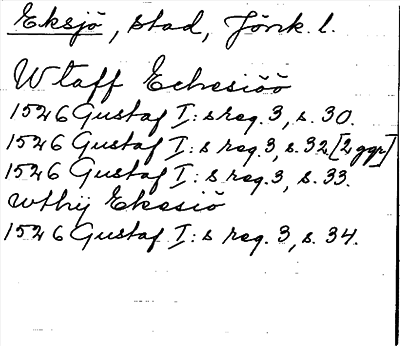 Eksjö, stad, Jönk. l.
Wtaff Echesiöö
1526 Gustaf I:s reg. 3, s. 30.
1526 Gustaf I:s reg. 3, s. 32 [2 ggr]
1526 Gustaf I:s reg. 3, s. 33.
wthij Ekesiö
1526 Gustaf I:s reg. 3, s. 34.